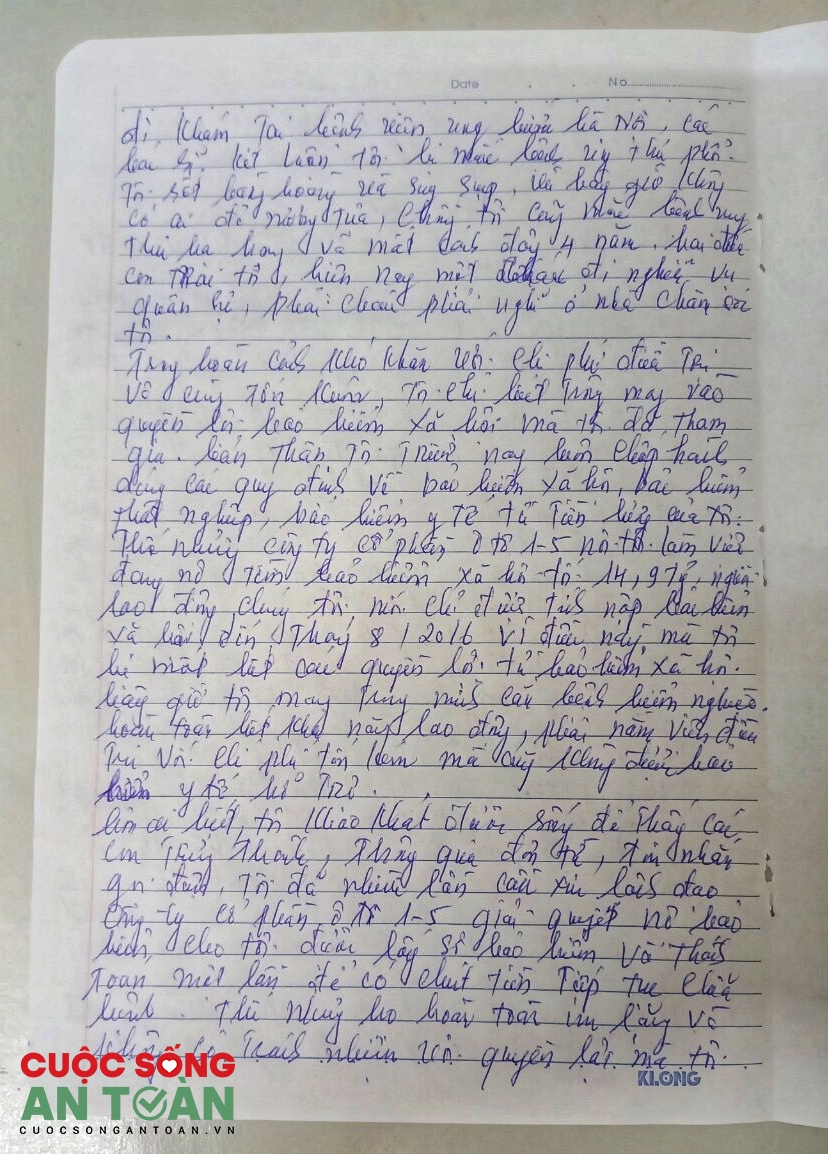 Date No
đi khám tại bệnh viện ung bướu Hà Nội, các
bác sĩ kết luận tôi bị mắc bệnh ung thư phổi.
Tôi rất bàng hoàng và suy sụp, vì bây giờ không
có ai để nương tựa, chồng tôi cũng mắc bệnh ung
thư và mất cách đây 4 năm. hai đứa
con trai tôi, hiện nay một đi nghĩa vụ
quân sự, phải nghỉ ở nhà chăm sóc
tôi.
Trong hoàn cảnh khó khăn với chi phí điều trị
vô cùng tốn kém, tôi chỉ biết trông may vào
quyền lợi bảo hiểm xã hội mà tôi đã tham
gia. bản thân tôi trước nay luôn chấp hành
đúng các quy định về bảo hiểm xã hội, bảo hiểm
thất nghiệp, bảo hiểm y tế từ tiền lương của tôi.
Thế nhưng công ty cổ phần ô tô 1-5 nơi tôi làm việc
đang nợ tiền bảo hiểm xã hội 14,97 tỷ, người
lao động chúng tôi chỉ được tính nộp bảo hiểm
xã hội đến tháng 8/2016 vì điều này mà tôi
bị mất hết các quyền lợi từ bảo hiểm xã hội.
bây giờ tôi mang trong mình căn bệnh hiểm nghèo.
hoàn toàn hết khả năng lao động, phải nằm viện điều
trị với chi phí tốn kém mà cũng không được bảo
hiểm y tế hỗ trợ.
hơn ai hết, tôi khao khát được sống để thấy các
con trưởng thành, thông qua đơn từ, tin nhắn
gọi điện, tôi đã nhiều lần cầu xin lãnh đạo
công ty cổ phần ô tô 1-5 giải quyết nợ bảo
hiểm cho tôi được lấy sổ bảo hiểm và thanh
toán một lần để có chút tiền tiếp tục chữa
bệnh. Thế nhưng họ hoàn toàn im lặng và
không có trách nhiệm với quyền lợi mà tôi
KLONG
CUỘC SỐNG
AN TOÀN
CUOCSONGANTOAN.VN